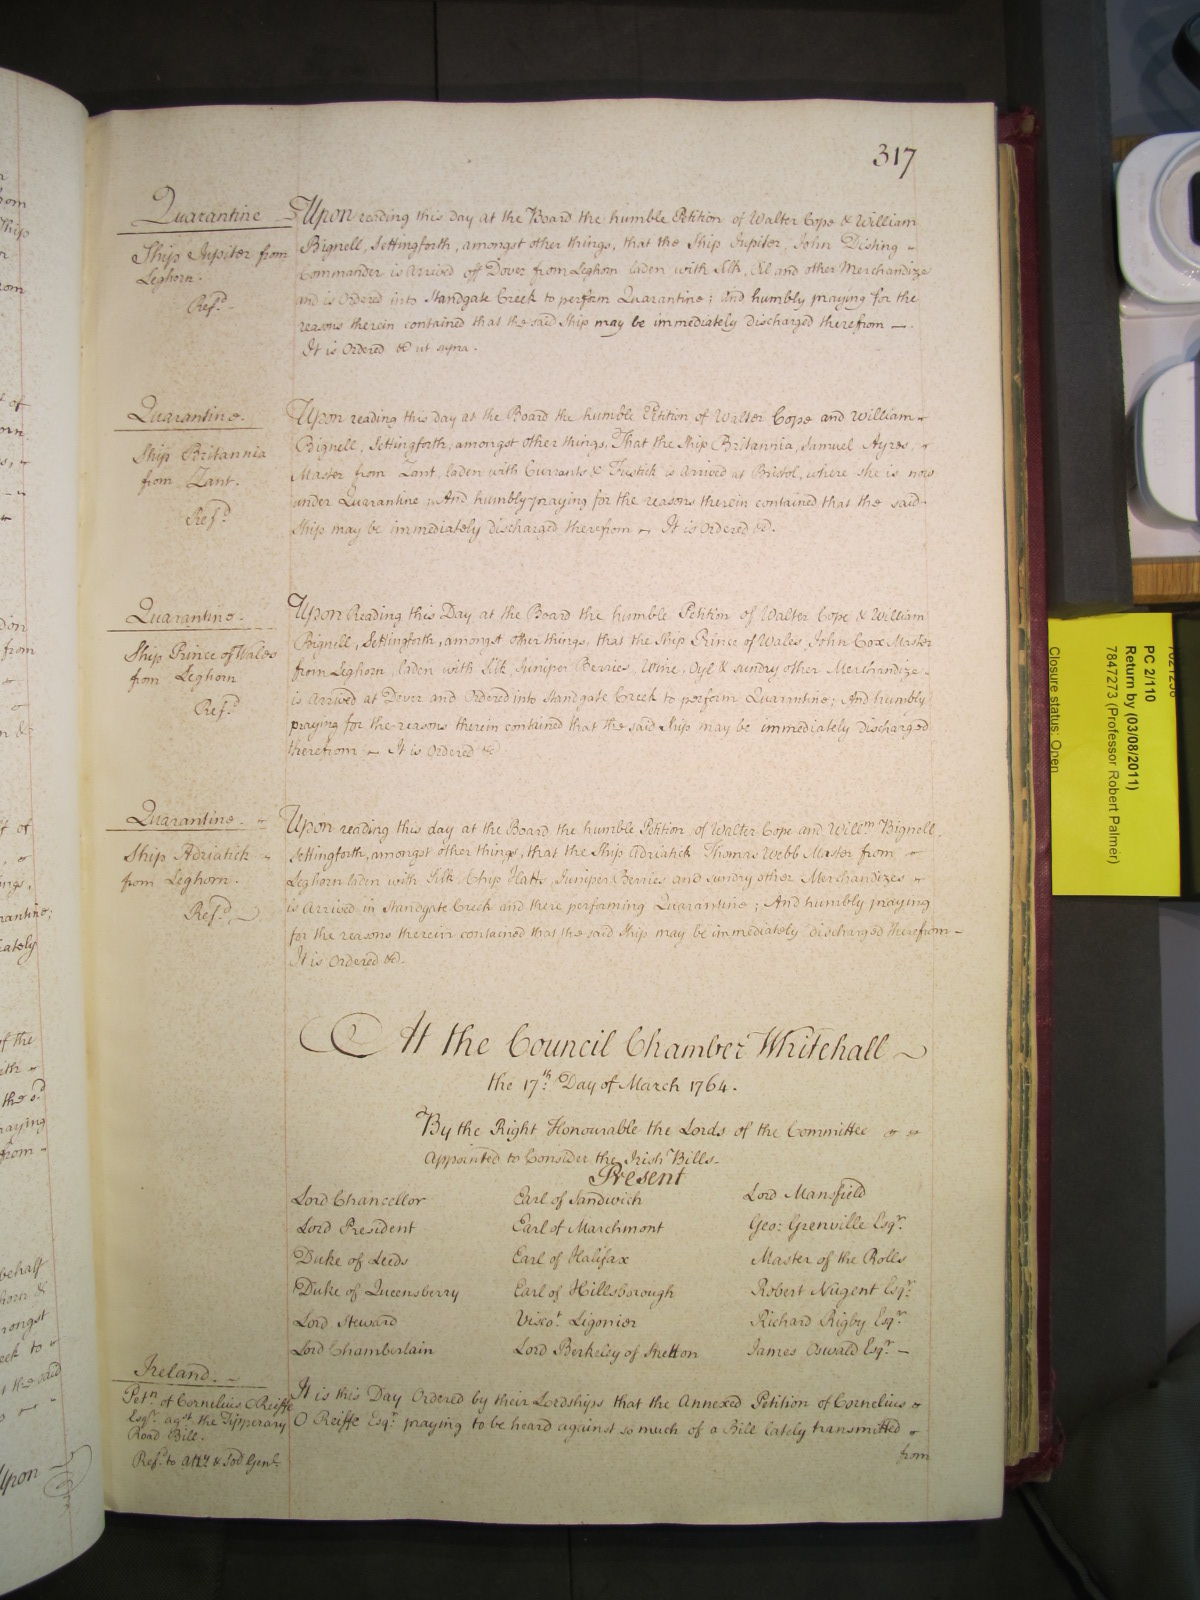 317
Quarantine
Ship Jupiter from
Leghorn.
Ref.d
Upon reading this day at the Board the humble Petition of Walter Cope & William
Bignell, Settingforth, amongst other things, that the Ship Jupiter, John Dishing
Commander is arrived off Dover from Leghorn laden with Silk, Oil and other Merchandize
and is Ordered into Standgate Creek to perform Quarantine; and humbly praying for the
reasons therein contained that the said Ship may be immediately discharged therefrom —.
It is Ordered &c ut supra.
Quarantine.
Ship Britannia
from Zant.
Ref.d
Upon reading this day at the Board the humble Petition of Walter Cope and William
Bignell, Settingforth, amongst other things, That the Ship Britannia, Samuel Ayres,
Master from Zant, laden with Currants & Fustick is arrived at Bristol, where she is now
under Quarantine; And humbly praying for the reasons therein contained that the said
Ship may be immediately discharged therefrom — It is Ordered &c.
Quarantine.
Ship Prince of Wales
from Leghorn
Ref.d
Upon Reading this Day at the Board the humble Petition of Walter Cope & William
Bignell, Settingforth, amongst other things, that the Ship Prince of Wales, John Cox Master
from Leghorn, laden with Silk, Juniper Berries, Wine, Oyl & sundry other Merchandize
is Arrived at Dover and Ordered into Standgate Creek to perform Quarantine; And humbly
praying for the reasons therein contained that the said Ship may be immediately discharged
therefrom — It is Ordered &c
Quarantine.
Ship Adriatick
from Leghorn.
Ref.d
Upon reading this day at the Board the humble Petition of Walter Cope and Will.m Bignell,
Settingforth, amongst other things, that the Ship Adriatick Thomas Webb Master from
Leghorn laden with Silk, Chip Hatts, Juniper Berries and sundry other Merchandizes
is Arrived in Standgate Creek and there performing Quarantine; And humbly praying
for the reasons therein contained that the said Ship may be immediately discharged therefrom —
It is Ordered &c.
At the Council Chamber Whitehall
the 17.th Day of March 1764.
By the Right Honourable the Lords of the Committee
Appointed to Consider the Irish Bills.
Present
Lord Chancellor Earl of Sandwich Lord Mansfield
Lord President Earl of Marchmont Geo: Grenville Esq.r
Duke of Leeds Earl of Halifax Master of the Rolls
Duke of Queensberry Earl of Hillsborough Robert Nugent Esq.r
Lord Steward Visco.t Ligonier Richard Rigby Esq.r
Lord Chamberlain Lord Berkeley of Stratton James Oswald Esq.r —
Ireland.
Pet.n of Cornelius OReiffe
Esq.r ag.st the Tipperary
Road Bill.
Ref.d to Att.y & Sol.r Gen.l
It is this Day Ordered by their Lordships that the Annexed Petition of Cornelius
O Reiffe Esq.r praying to be heard against so much of a Bill lately transmitted
from
PC 2/110
Return by (03/08/2011)
7847273 (Professor Robert Palmer)
Closure status: Open